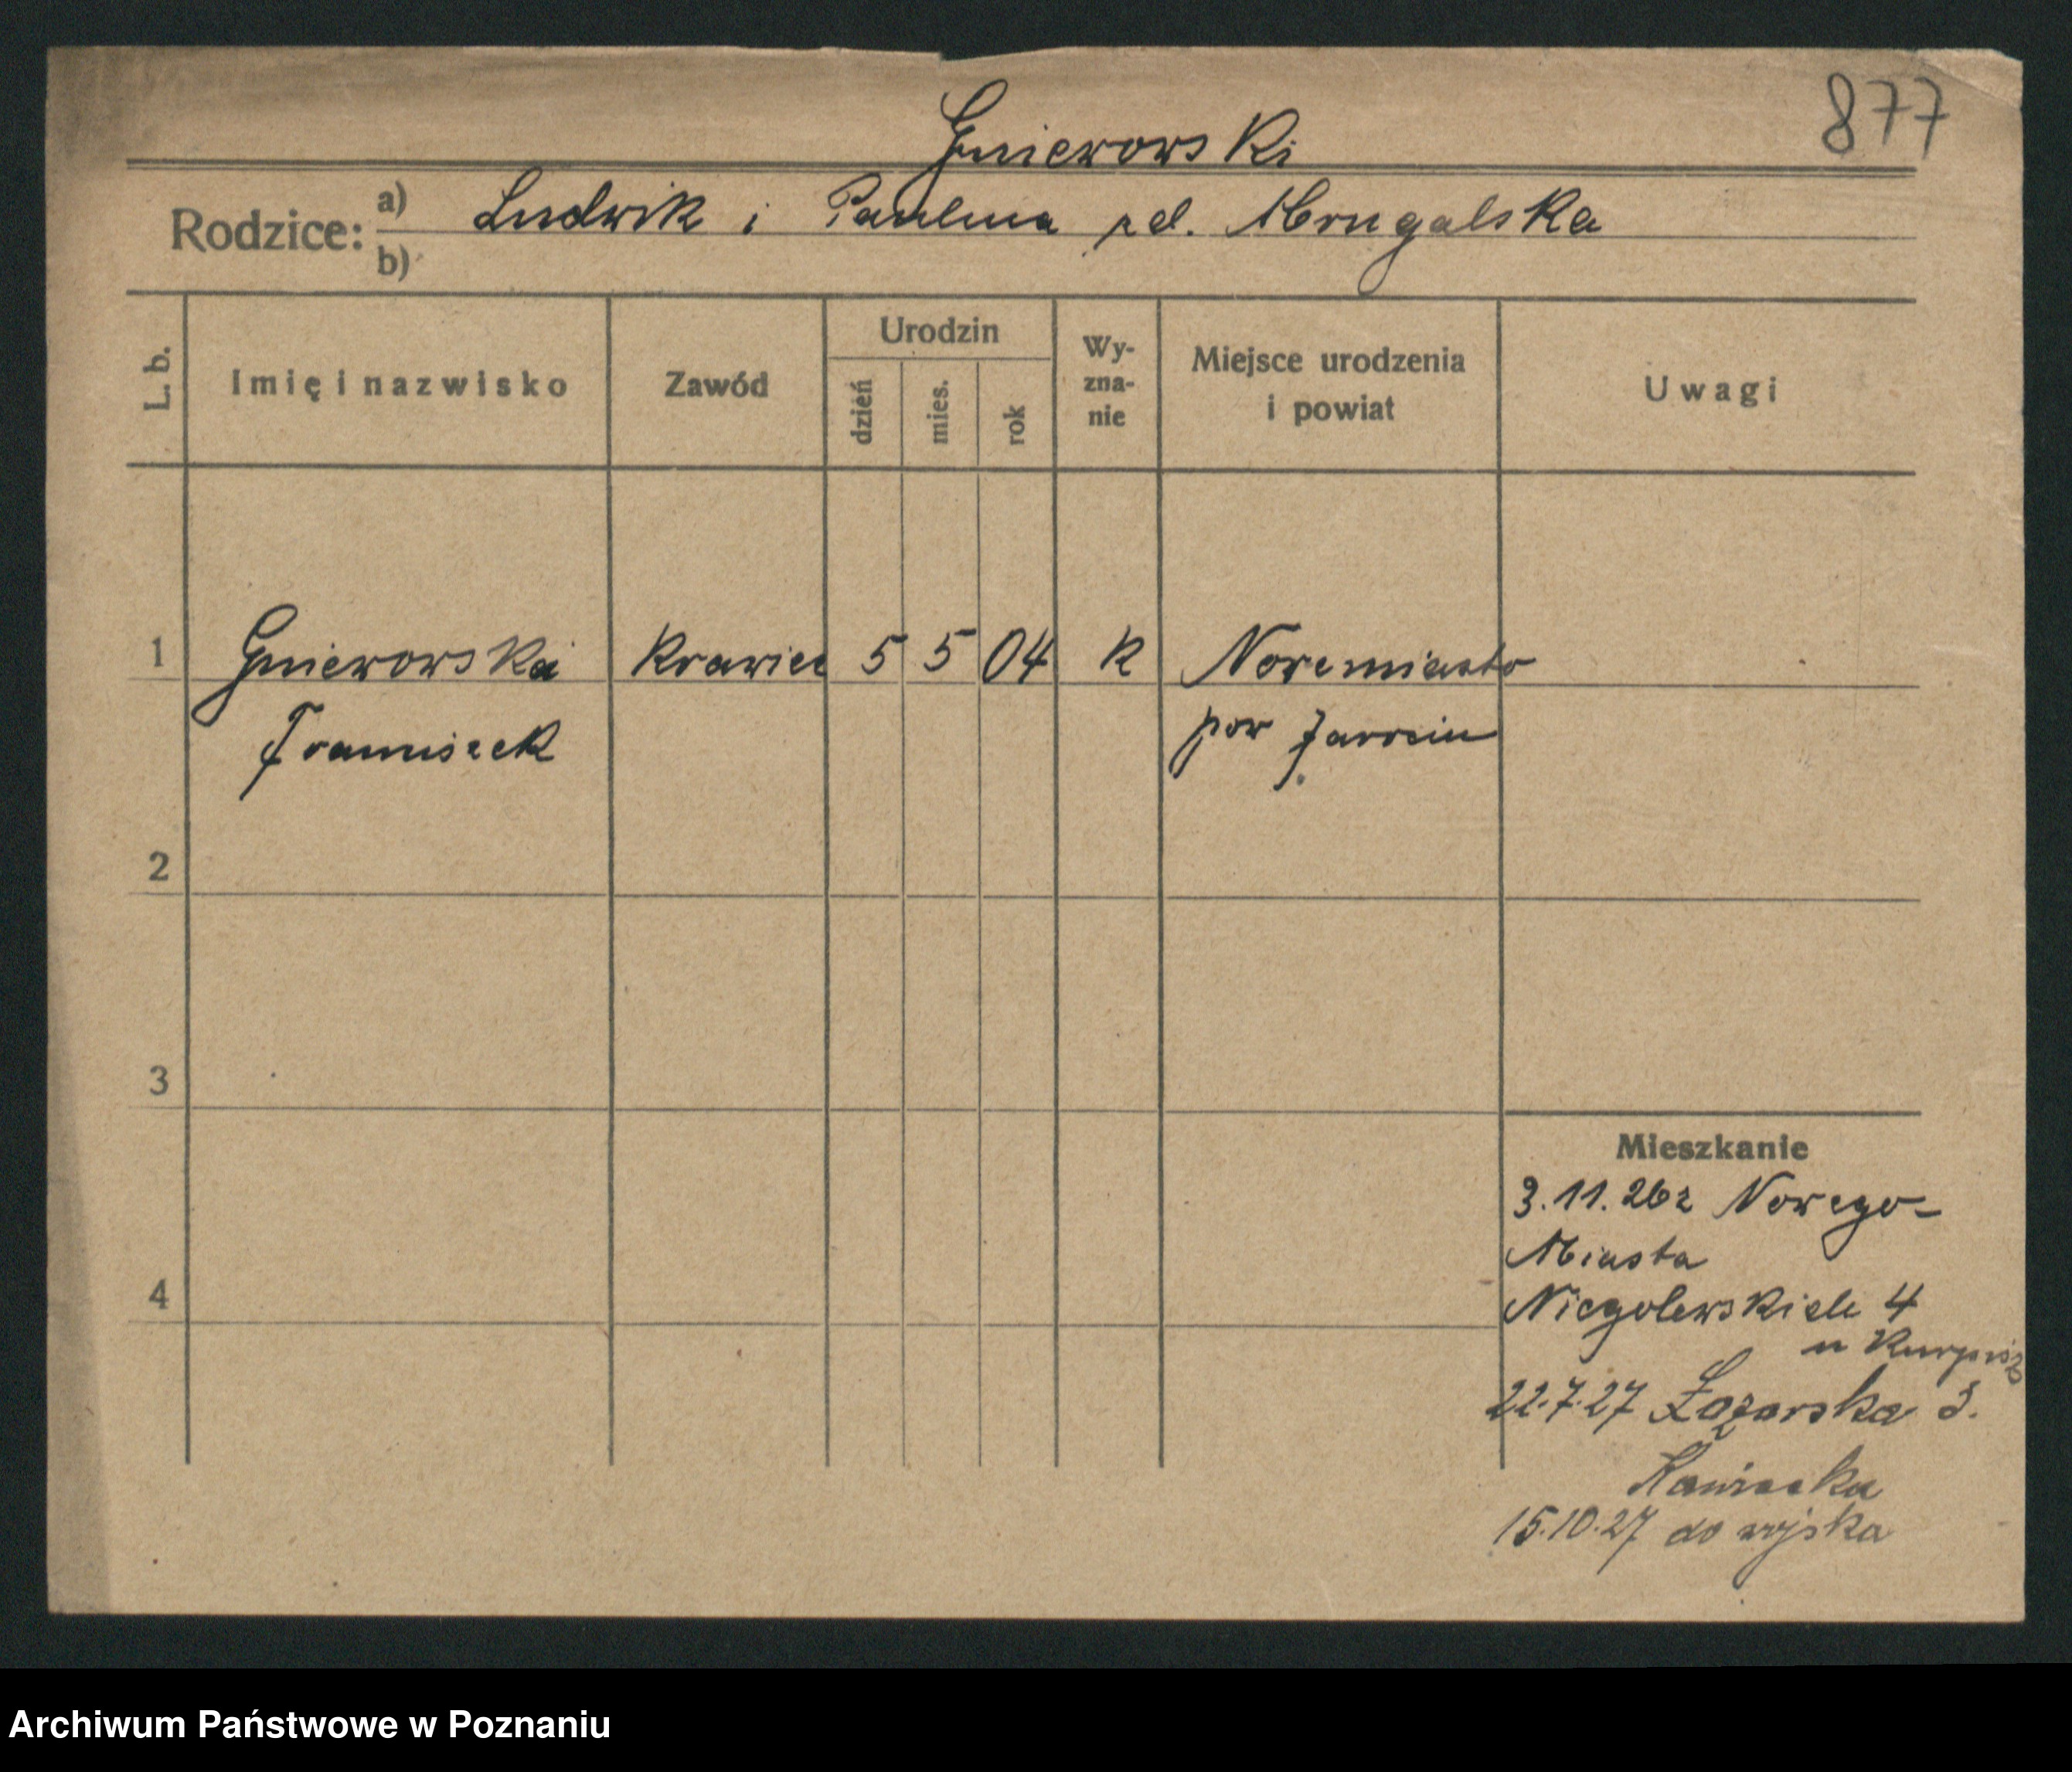 877
Gniewowski
Rodzice: a) Ludwik i Paulina zd. Mrugalska
b)
L. b. Imię i nazwisko Zawód Urodzin dzień mies. rok Wyznanie Miejsce urodzenia i powiat Uwagi
1 Gniewowski Krawiec 5 5 04 K Nowemiasto
Franciszek pow Jarocin
2
3
Mieszkanie
3.11.26 z Nowego-
Miasta
4 Niegolewskich 4
u
22.7.27 Łazarska 3.
15.10.27 do wojska
Archiwum Państwowe w Poznaniu